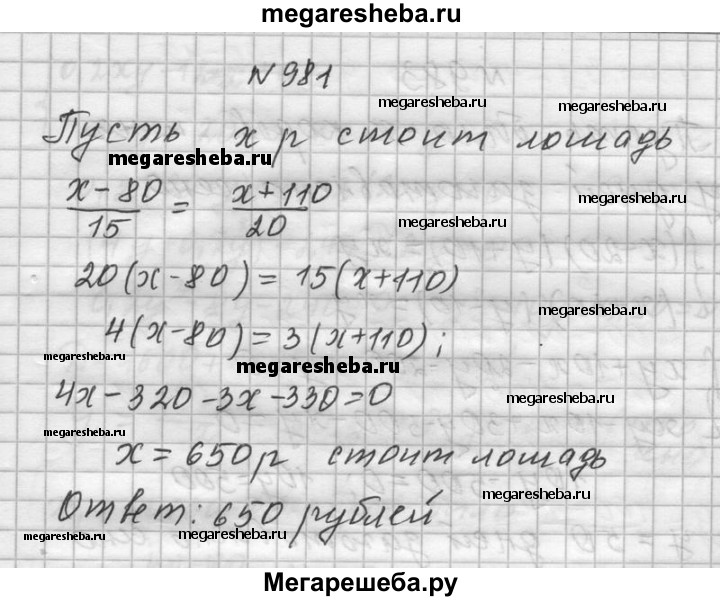 megaresheba.ru
N981
megaresheba.ru
Пусть x р стоит лошадь
megaresheba.ru
x-80/15 = x+110/20
megaresheba.ru
megaresheba.ru
20(x-80) = 15(x+110)
megaresheba.ru
4(x-80) = 3(x+110);
megaresheba.ru
megaresheba.ru
4x-320-3x-330=0
megaresheba.ru
megaresheba.ru
x = 650р стоит лошадь
megaresheba.ru
Ответ: 650 рублей
megaresheba.ru
megaresheba.ru
megaresheba.ru
Мегарешеба.ру